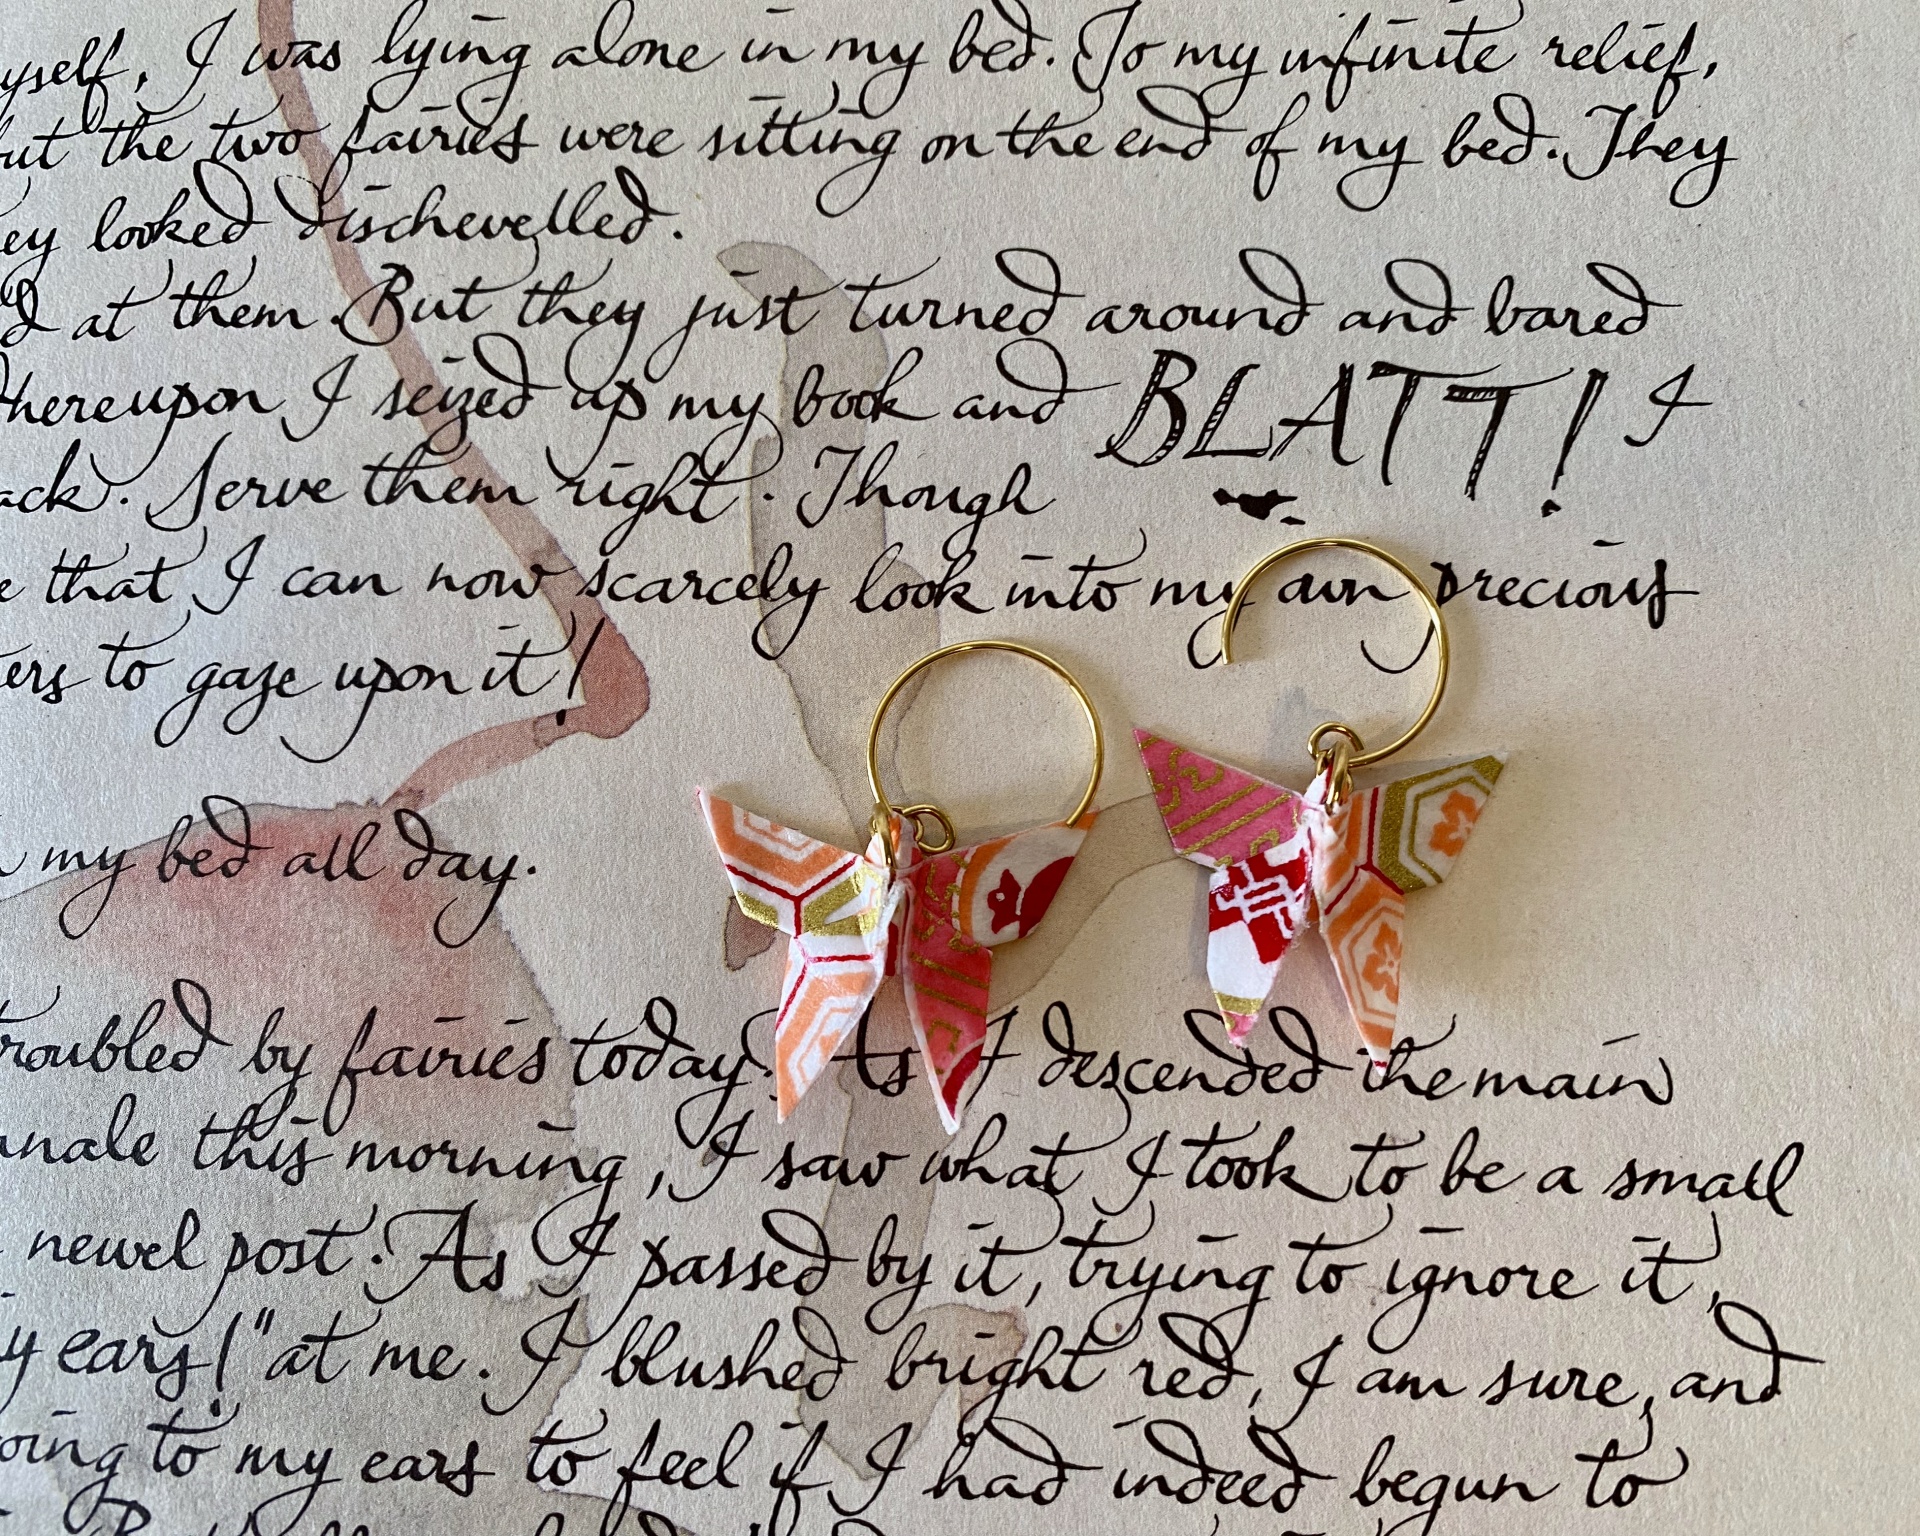 yself, I was lying alone in my bed. To my infinite relief,
but the two fairies were sitting on the end of my bed. They
ey looked dischevelled.
d at them. But they just turned around and bared
hereupon I seized up my book and BLATT! I
ack. Serve them right. Though
e that I can now scarcely look into my own precious
ers to gaze upon it!
my bed all day.
troubled by fairies today. As I descended the main
nale this morning, I saw what I took to be a small
newel post. As I passed by it, trying to ignore it,
y ears!" at me. I blushed bright red, I am sure, and
oing to my ears to feel if I had indeed begun to